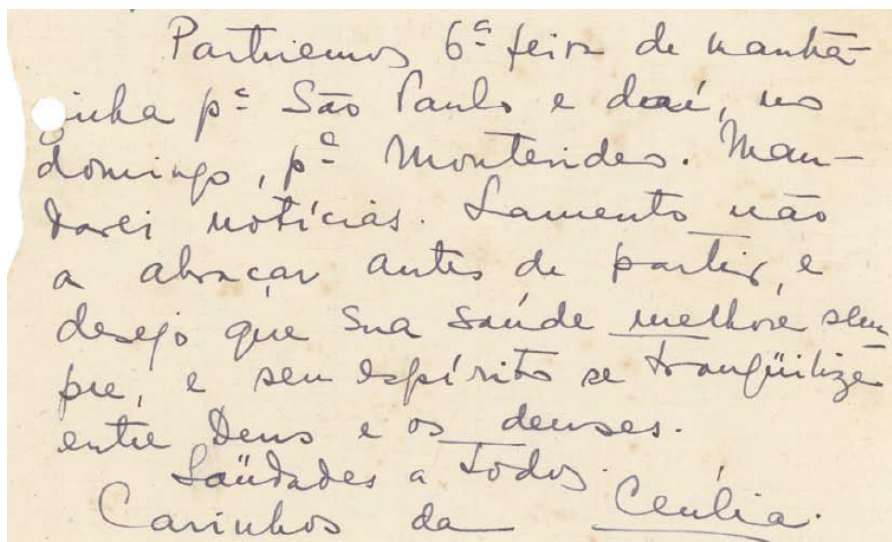 Partiremos 6ª feira de manhã-
zinha pª São Paulo e daí, no
domingo, pª Montevideo. Man-
darei notícias. Lamento não
a abraçar antes de partir, e
desejo que sua saúde melhore sem-
pre, e seu espírito se tranqüilize
entre Deus e os deuses.
Saüdades a todos.
Carinhos da Cecília.